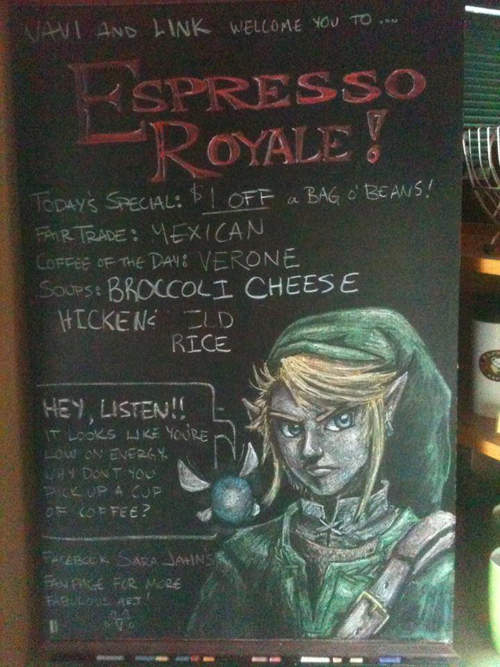 NAVI AND LINK WELCOME YOU TO...
ESPRESSO
ROYALE!
TODAY'S SPECIAL: $1 OFF a BAG O' BEANS!
FAIR TRADE: MEXICAN
COFFEE OF THE DAY: VERONE
SOUPS: BROCCOLI CHEESE
HICKEN ILD
RICE
HEY, LISTEN!!
IT LOOKS LIKE YOU'RE
LOW ON ENERGY.
WHY DON'T YOU
PICK UP A CUP
OF COFFEE?
FACEBOOK SARA JAHN'S
FAN PAGE FOR MORE
FABULOUS ART!